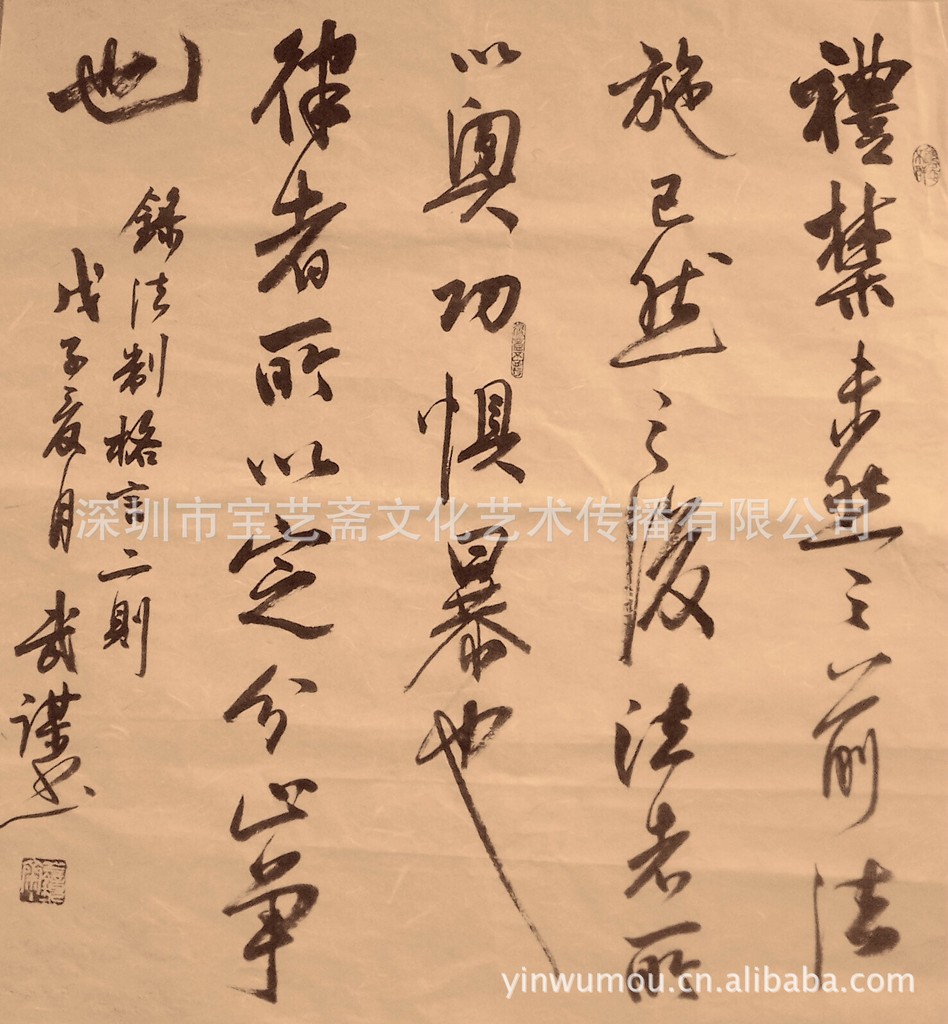 禮禁未然之前法
施已然之後法者所
以興功惧暴也
律者所以定分止爭
也
錄法制格言二則
戊子夏月
武謀书
深圳市宝艺斋文化艺术传播有限公司
yinwumou.cn.alibaba.com